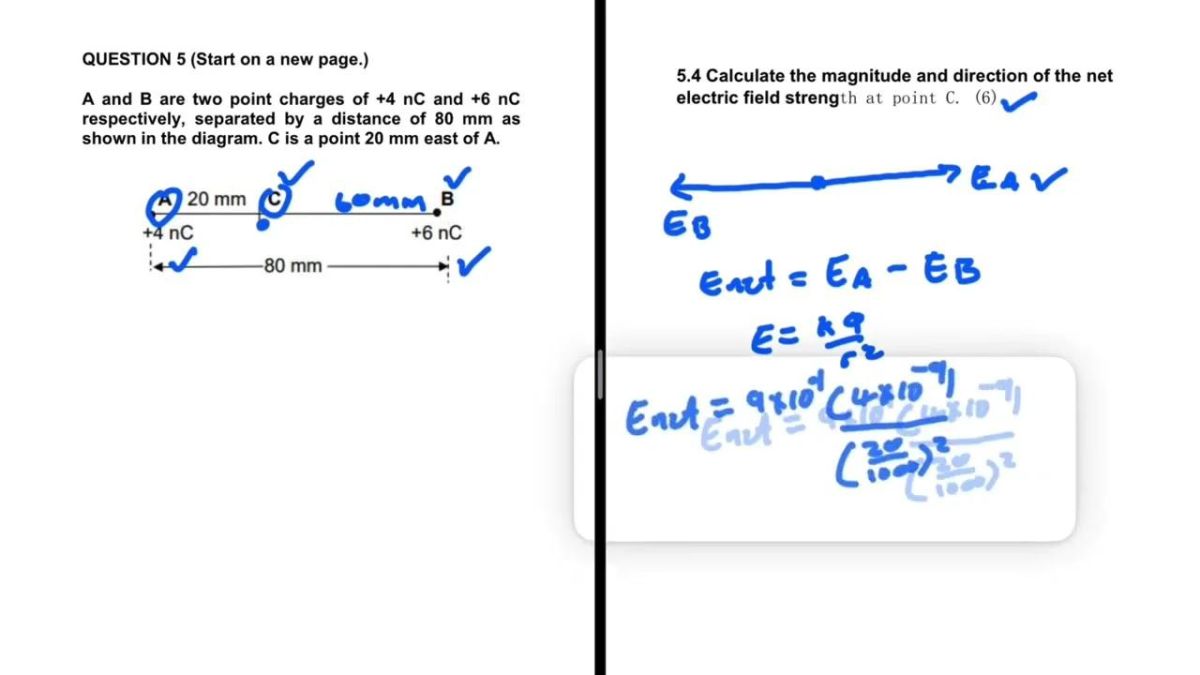 QUESTION 5 (Start on a new page.)
A and B are two point charges of +4 nC and +6 nC
respectively, separated by a distance of 80 mm as
shown in the diagram. C is a point 20 mm east of A.
A 20 mm C 60mm B
+4 nC +6 nC
80 mm
5.4 Calculate the magnitude and direction of the net
electric field strength at point C. (6)
EA
EB
Enet = EA - EB
E = kq
r²
Enet = 9x10⁹ (4x10⁻⁹)
(20
1000)²
Enet = 9x10⁹ (4x10⁻⁹)
(20
1000)²